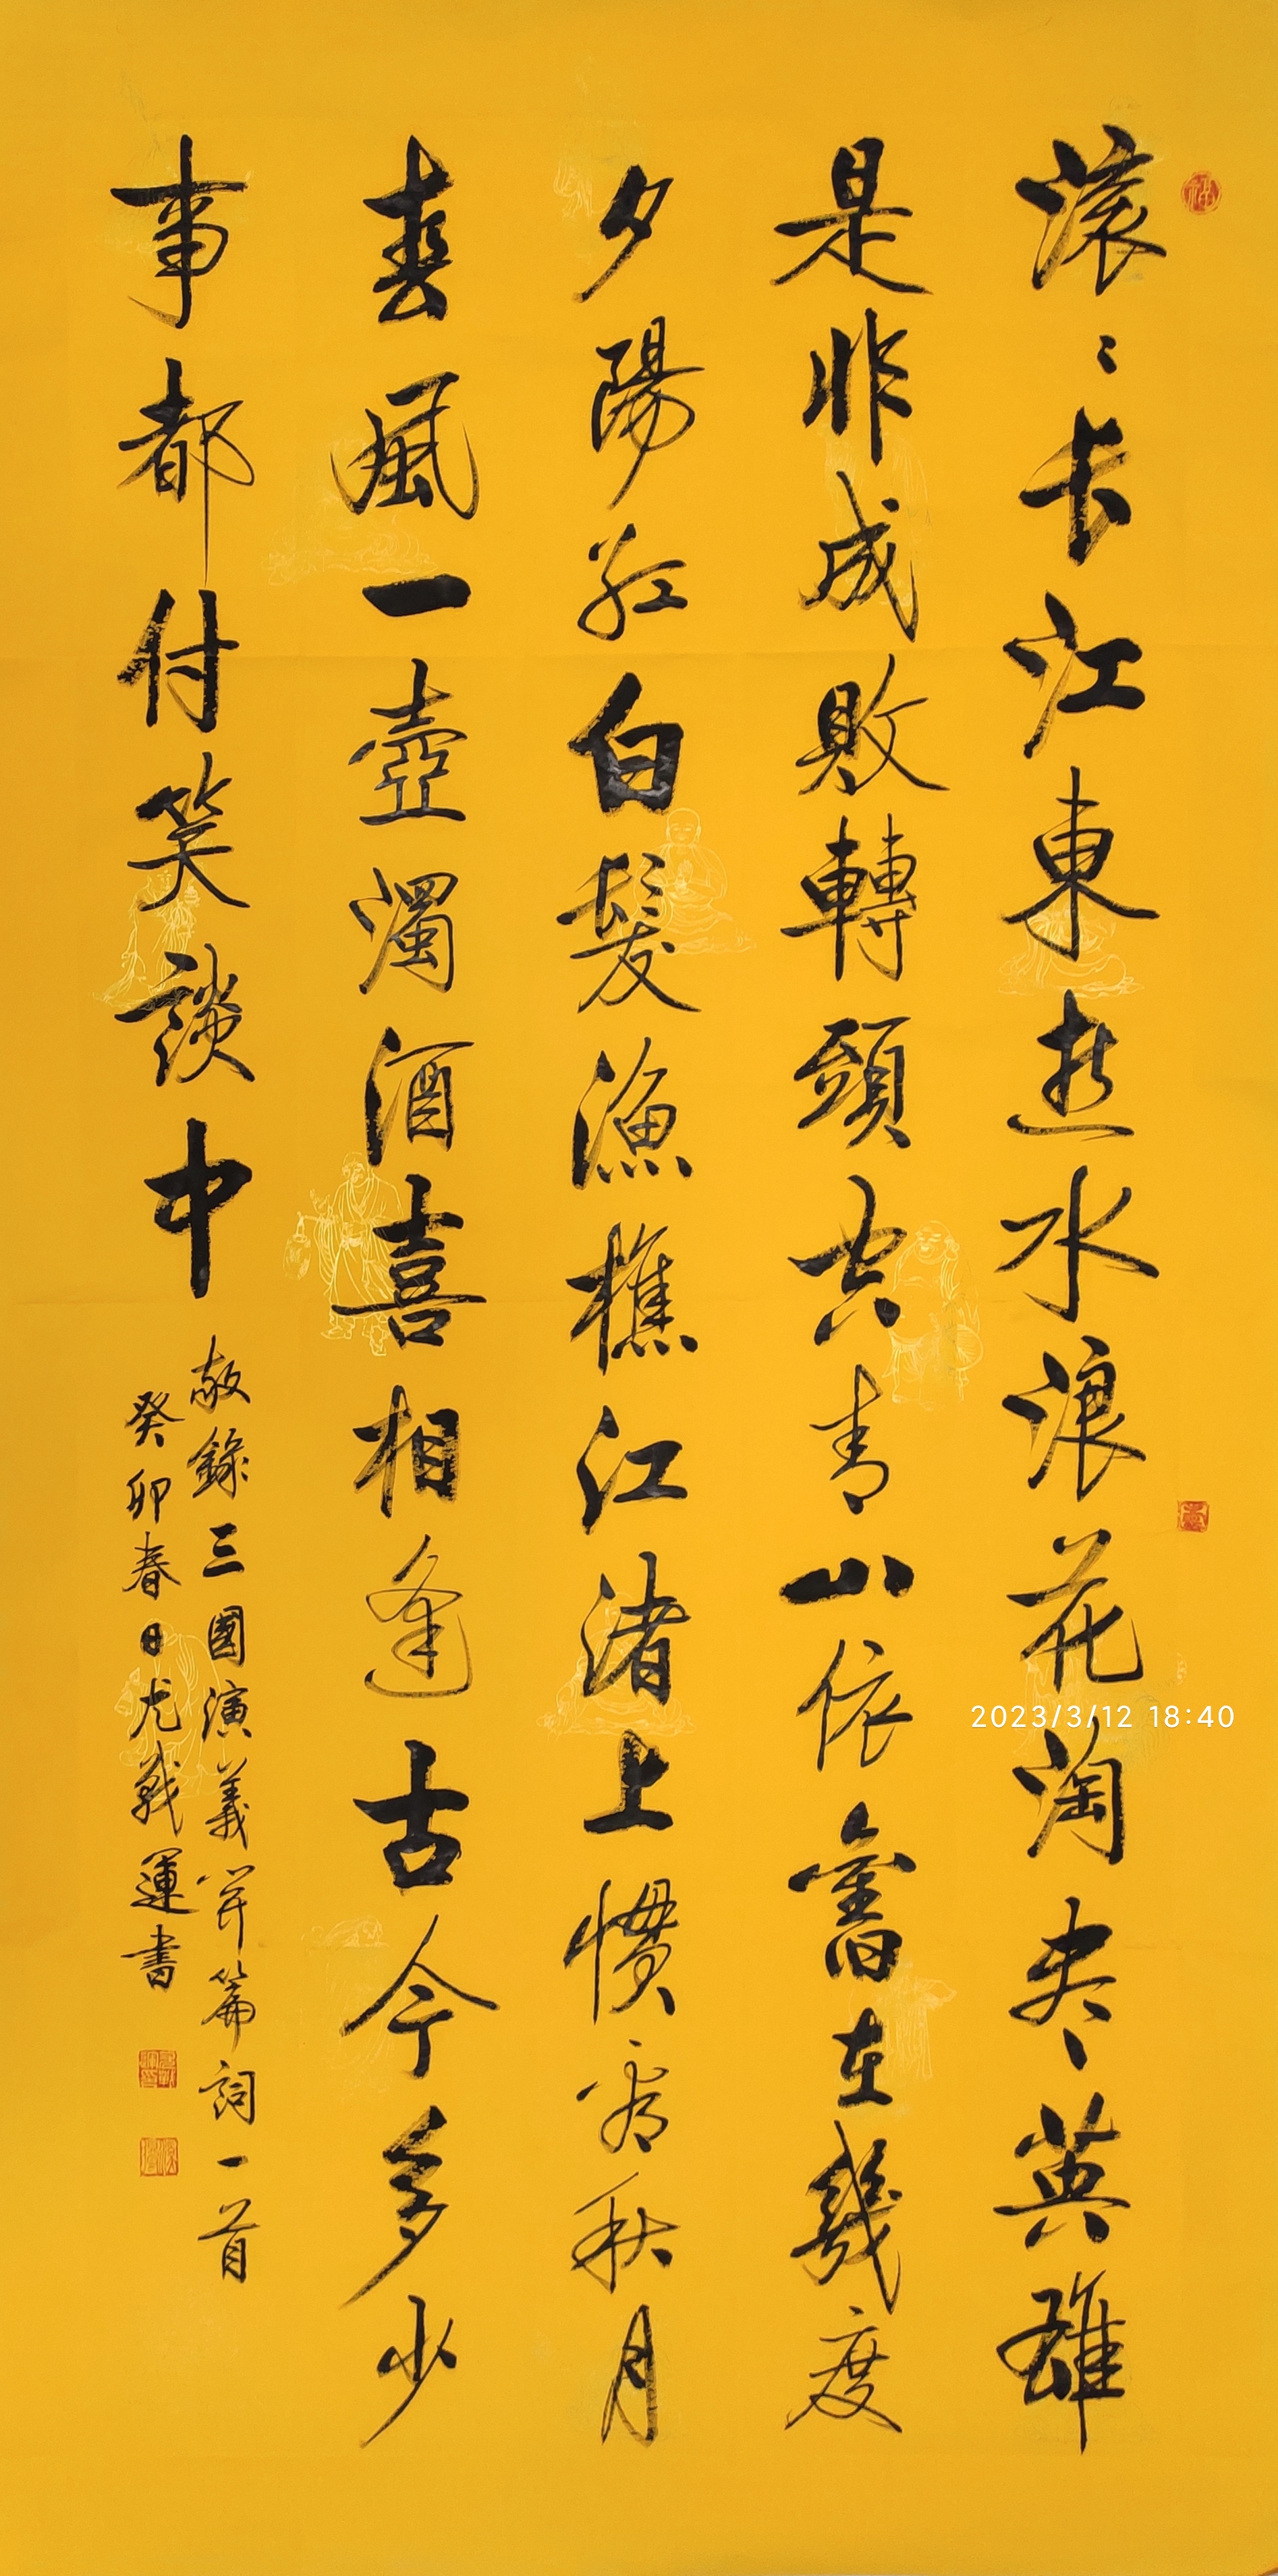 滚〻长江東逝水浪花淘尽英雄
是非成敗轉頭空青山依舊在幾度
夕陽紅白髮漁樵江渚上慣看秋月
春風一壺濁酒喜相逢古今多少
事都付笑談中
敬錄三國演義開篇詞一首
癸卯春日尤戰運書
2023/3/12 18:40